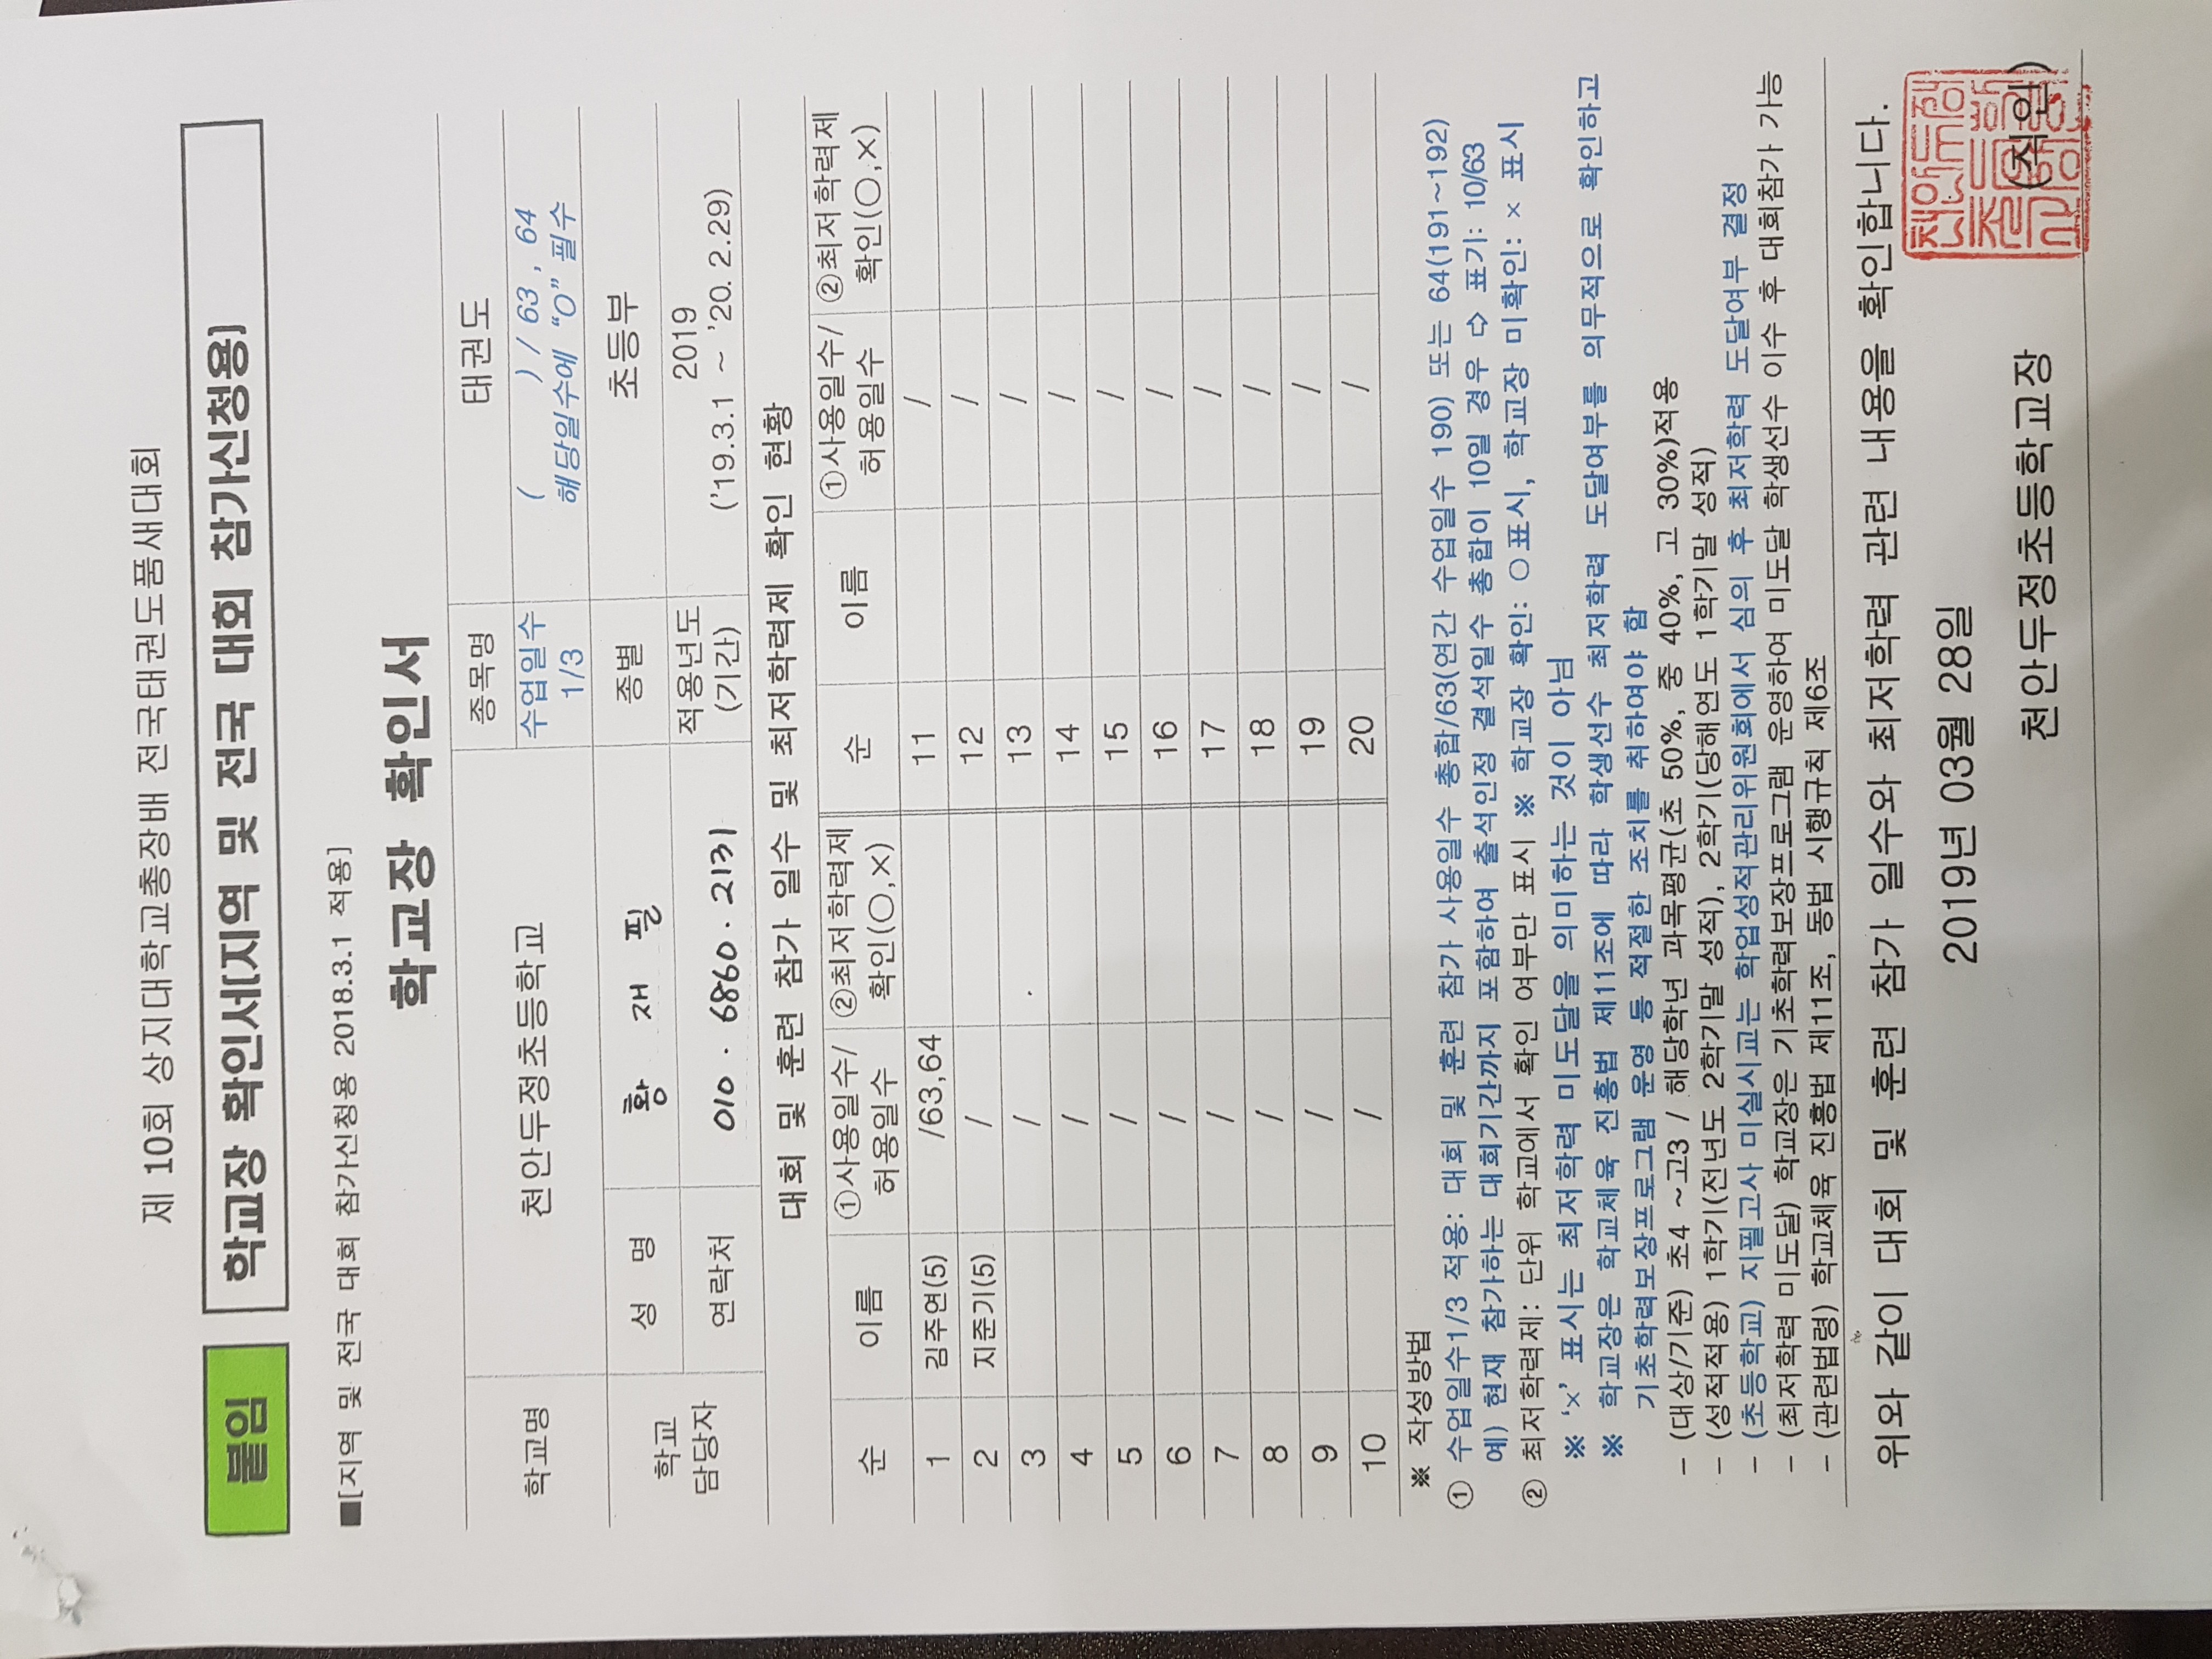 제 10회 상지대학교총장배 전국태권도품새대회
붙임 학교장 확인서(지역 및 전국 대회 참가신청용)
■[지역 및 전국 대회 참가신청용 2018.3.1 적용]
학교장 확인서
학교명 천안두정초등학교 종목명 태권도
수업일수 1/3 ( ) / 63 , 64
해당일수에 “O” 필수
학교 담당자 성 명 황 재 필 종별 초등부
연락처 010 · 6860 · 2131 적용년도 (기간) 2019
('19.3.1 ~ '20.2.29)
대회 및 훈련 참가 일수 및 최저학력제 확인 현황
순 이름 ①사용일수/허용일수 ②최저학력제 확인(○,×) 순 이름 ①사용일수/허용일수 ②최저학력제 확인(○,×)
1 김주연(5) /63,64 11 /
2 지준기(5) / 12 /
3 / 13 /
4 / 14 /
5 / 15 /
6 / 16 /
7 / 17 /
8 / 18 /
9 / 19 /
10 / 20 /
※ 작성방법
① 수업일수1/3 적용: 대회 및 훈련 참가 사용일수 총합/63(연간 수업일수 190) 또는 64(191~192)
예) 현재 참가하는 대회기간까지 포함하여 출석인정 결석일수 총합이 10일 경우 ⇨ 표기: 10/63
② 최저학력제: 단위 학교에서 확인 여부만 표시 ※ 학교장 확인: ○표시, 학교장 미확인: × 표시
※ '×' 표시는 최저학력 미도달을 의미하는 것이 아님
※ 학교장은 학교체육 진흥법 제11조에 따라 학생선수 최저학력 도달여부를 의무적으로 확인하고
기초학력보장프로그램 운영 등 적절한 조치를 취하여야 함
- (대상/기준) 초4 ~고3 / 해당학년 과목평균(초 50%, 중 40%, 고 30%)적용
- (성적적용) 1학기(전년도 2학기말 성적), 2학기(당해연도 1학기말 성적)
- (초등학교) 지필고사 미실시교는 학업성적관리위원회에서 심의 후 최저학력 도달여부 결정
- (최저학력 미도달) 학교장은 기초학력보장프로그램 운영하여 미도달 학생선수 이수 후 대회참가 가능
- (관련법령) 학교체육 진흥법 제11조, 동법 시행규칙 제6조
위와 같이 대회 및 훈련 참가 일수와 최저학력 관련 내용을 확인합니다.
2019년 03월 28일
천안두정초등학교장 (직인)